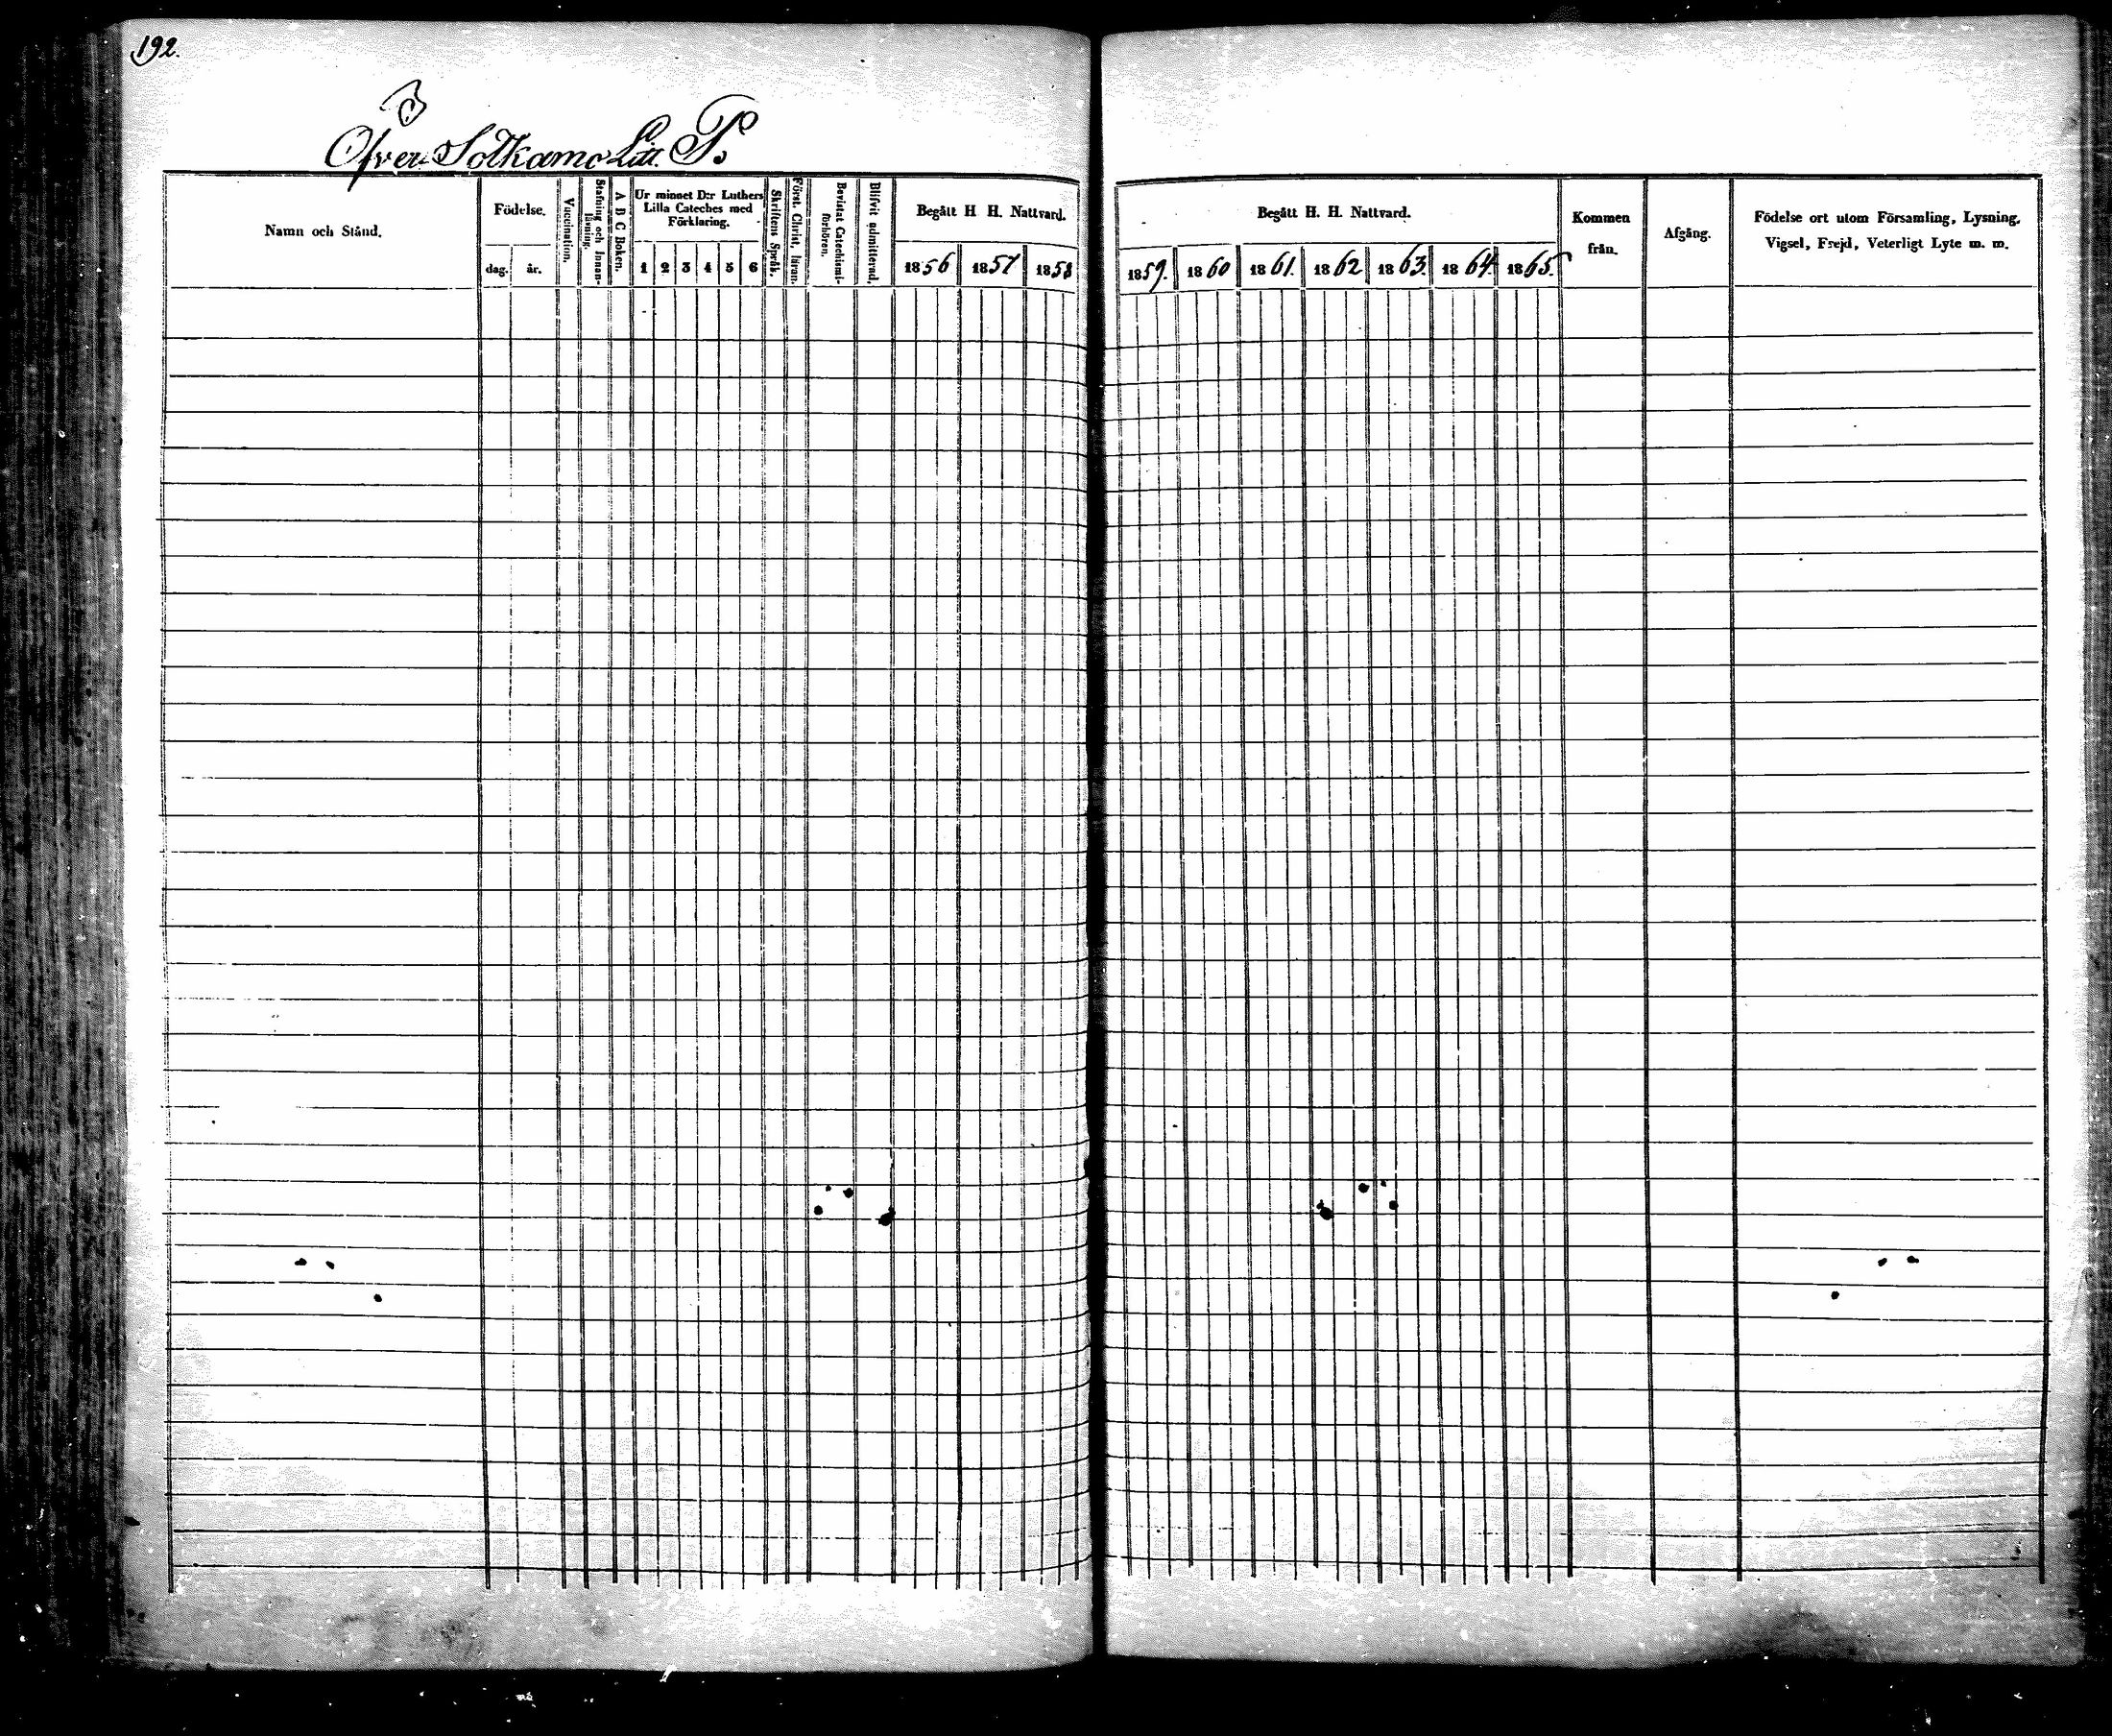 192.
B
Öfver Sotkamo Litt. P.
Namn och Stånd.
Födelse.
dag. år.
Vaccination.
Stafning och Innan-
läsning.
A B C Boken.
Ur minnet D:r Luthers
Lilla Cateches med
Förklaring.
1 2 3 4 5 6
Skriftens Språk.
Först. Christ. läran.
Bevistat Catechismi-
förhören.
Blifvit admitterad.
Begått H H. Nattvard.
1856 1857 1858
Begått H. H. Nattvard.
1859. 1860 1861. 1862 1863. 1864. 1865.
Kommen
från.
Afgång.
Födelse ort utom Församling, Lysning,
Vigsel, Frejd, Veterligt Lyte m. m.